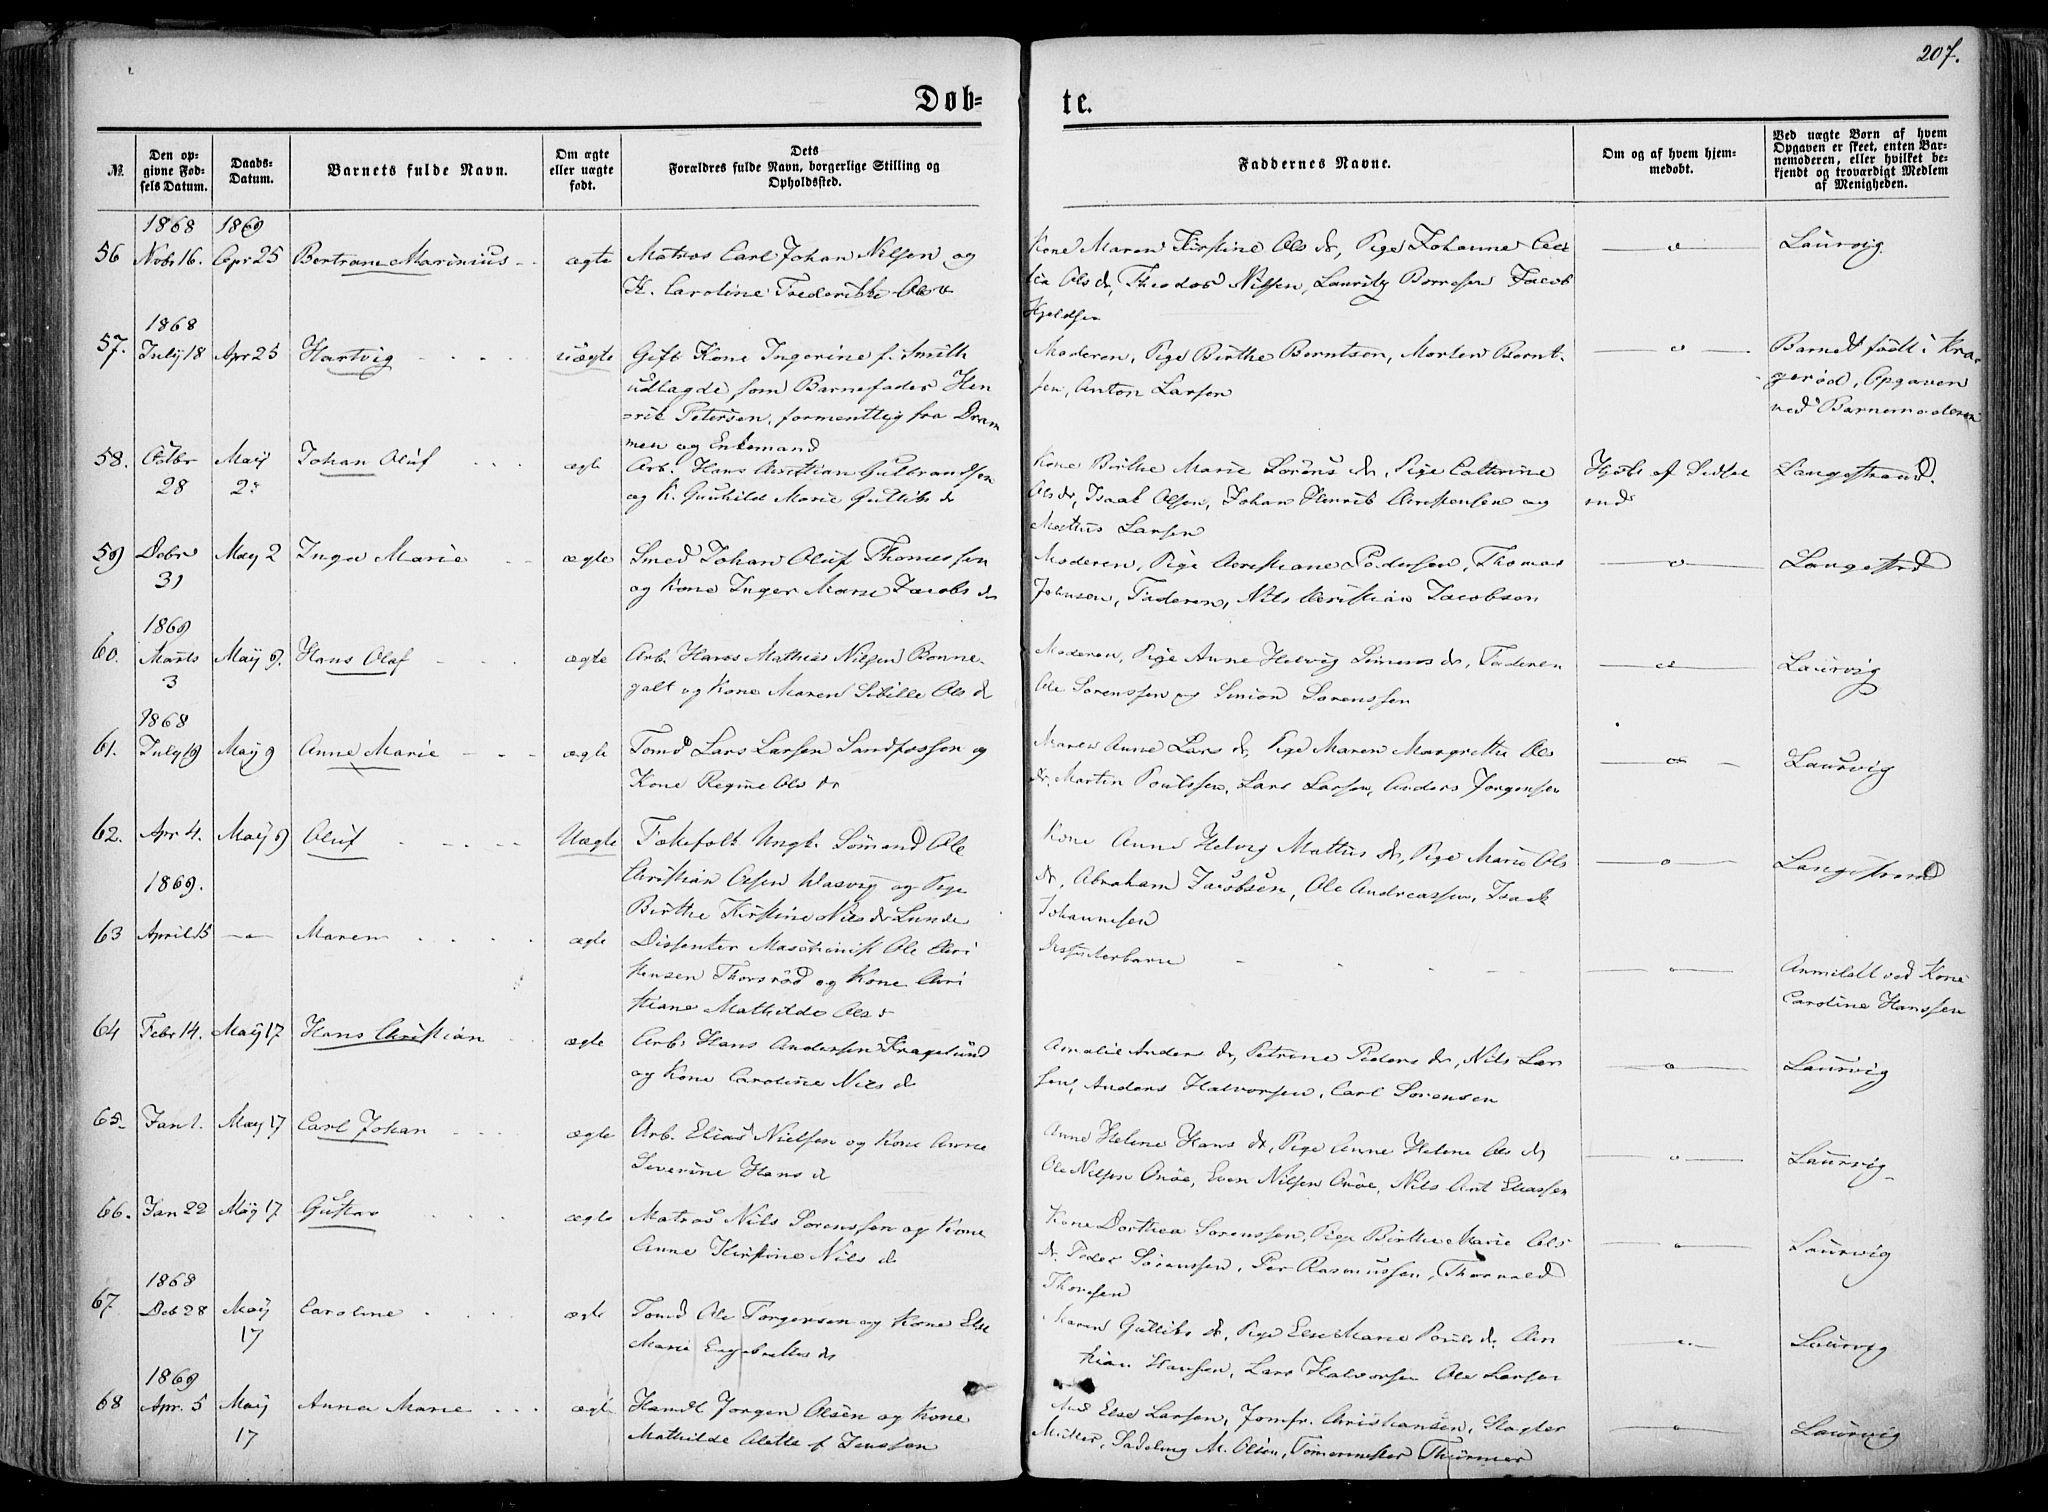 207.
Døb-
te.
№
Den op-
givne Fød-
sels Datum.
Daabs-
Datum.
Barnets fulde Navn.
Om ægte
eller uægte
født.
Dets
Forældres fulde Navn, borgerlige Stilling og
Opholdssted.
Faddernes Navne.
Om og af hvem hjem-
medøbt.
Ved uægte Børn af hvem
Opgaven er skeet, enten Bar-
nemoderen, eller hvilket be-
kjendt og troværdigt Medlem
af Menigheden.
1868 1869
56 Nvbr 16. Apr 25 Bertram Marinius ægte Matros Carl Johan Nilsen og
K. Caroline Frederikke Ols d
Kone Maren Kirstine Ols dr, Pige Johanne Ceci
lia Ols dr, Theodor Nilsen, Lauritz Borresen Jacob
Kjeldsen
Laurvig.
1868
57. July 18 Apr 25 Hartvig uægte Gift Kone Ingerine f. Smith
udlagde som Barnefader Hen
rik Petersen, formentlig fra Dram
men og Enkemand
Moderen, Pige Birthe Berntsen, Morten Bernt-
sen, Anton Larsen
Barnet født i Kra
gerød, Opgaven
ved Barnemoderen
58. Octbr May Johan Oluf ægte Arb. Hans Christian Gulbrandsen
28 2. og K. Gunhilde Marie Gulliks d
Kone Birthe Marie Sørens dr, Pige Cathrine
Ols dr, Isaak Olsen, Johan Henrik Christensen og
Mathus Larsen
Hjdbt af
Langestrand.
59 Dcbr May 2 Inga Marie ægte Smed Johan Oluf Thomassen
31 og Kone Inger Marie Jacobs d
Moderen, Pige Christiane Pedersen, Thomas
Johnsen, Faderen, Nils Christian Jacobsen
Langestrd
1869
60. Marts May 9. Hans Olaf ægte Arb. Hans Mathias Nilsen Bonne-
3 galt og Kone Maren Sibille Ols d
Moderen, Pige Anne Helvig Simens dr, Faderen
Ole Sorenssen og Simon Sorenssen
Laurvig
1868
61. July 19 May 9 Anne Marie ægte Tomd Lars Larsen Sandfossen og
Kone Regine Ols dr
Maren Anne Lars dr, Pige Maren Margrethe Ols
dr, Martin Poulssen, Lars Larsen, Anders Jorgensen
Laurvig
62. Apr 4. May 9 Oluf Uægte Fækefolk Ungk. Sømand Ole
1869. Christian Olsen Hasvig og Pige
Birthe Kirstine Nils dr Lunde
Kone Anne Helvig Mathus dr, Pige Marie Ols
dr, Abraham Jacobsen, Ole Andreassen, Isak
Johannesen
Langestrand
63 April 15 Maren ægte Dissenter Maschinist Ole Chri
stensen Thorsrød og Kone Chri
stiane Mathilde Ols d
Dissenterbarn
Anmeldt ved Kone
Caroline Hanssen
64 Febr 14. May 17 Hans Christian ægte Arb. Hans Andersen Kragesund
og Kone Caroline Nils d
Amalie Anders dr, Petrine Peders dr, Nils Lar
sen, Anders Halvorsen, Carl Sorensen
Laurvig
65. Jan 1. May 17 Carl Johan ægte Arb. Elias Nielsen og Kone Anne
Severine Hans d
Anne Helene Hans dr, Pige Anne Helene Ols dr
Ole Nilsen Onøe, Even Nilsen Onøe, Nils Ant Eliassen
Laurvig
66. Jan 22 May 17 Gustav ægte Matros Nils Sorenssen og Kone
Anne Kirstine Nils d
Kone Dorthea Sorenssen, Pige Birthe Marie Ols
dr, Peder Sorenssen, Per Rasmussen, Thorvald
Thoresen
Laurvig
1868
67 Dcb 28 May Caroline ægte Tomd Ole Torgersen og Kone Else
17 Marie Engebrettes dr
Maren Gulliks dr, Pige Else Marie Pouls dr, Chri
stian Hansen, Lars Halvorsen Ole Larsen
Laurvig
1869
68 Apr. 5 May Anna Marie ægte Handl. Jorgen Olsen og Kone
17 Mathilde Alette f Jenssen
Mad Else Larsen, Jomfr. Christiansen, Slagter
Müller, M. Olsen, Tømermester Thurmer
Laurvig